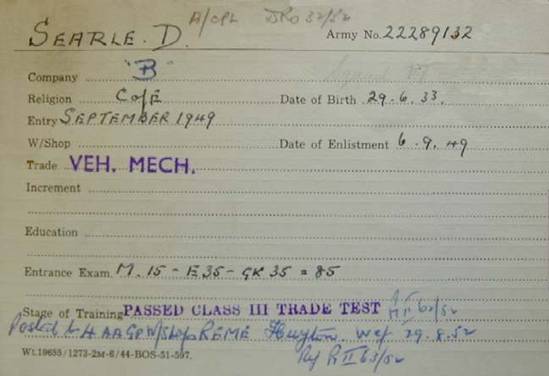 A/CPL DRO 32/52
SEARLE. D. Army No. 22289132
Company "B"
Religion C of E Date of Birth 29.6.33.
Entry SEPTEMBER 1949
W/Shop Date of Enlistment 6.9.49
Trade VEH. MECH.
Increment
Education
Entrance Exam. M.15 - E35 - GK 35 = 85
Stage of Training PASSED CLASS III TRADE TEST 63/52
Posted to H AAGP W/Shop REME Huyton wef 29.8.52
Wt.19655/1273-2M-6/44-BOS-51-507. Ref Pt II 63/52